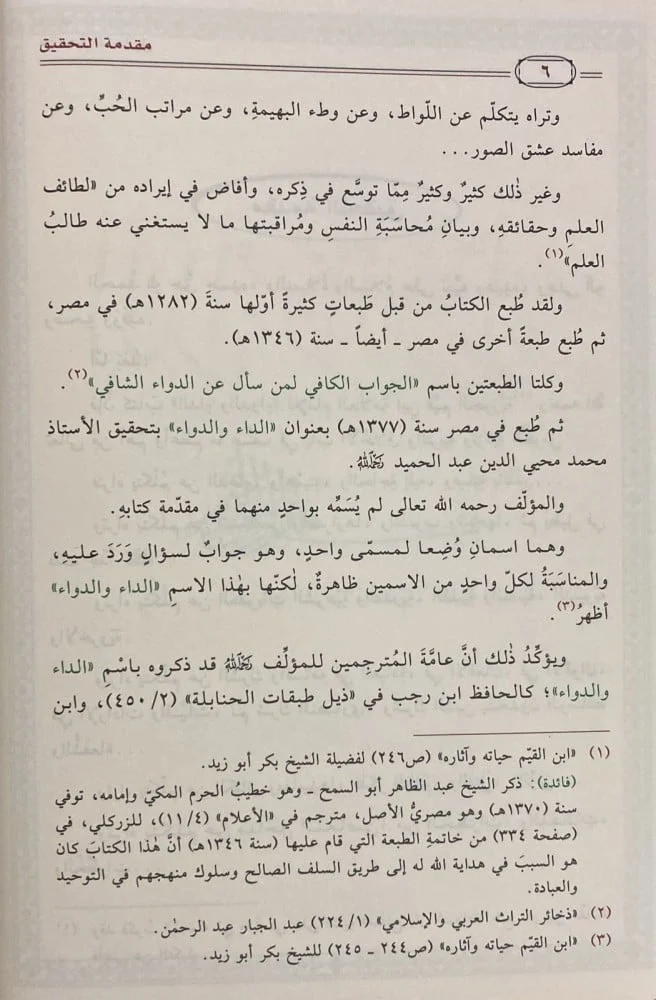 مقدمة التحقيق
٦
وتراه يتكلّم عن اللّواط، وعن وطء البهيمةِ، وعن مراتب الحُبِّ، وعن
مفاسد عشق الصور...
وغير ذٰلك كثيرٌ وكثيرٌ مِمّا توسَّع في ذِكره، وأفاض في إيراده من «لطائف
العلمِ وحقائقهِ، وبيانِ مُحاسَبَةِ النفسِ ومُراقبتها ما لا يستغني عنه طالبُ
العلم»(١).
ولقد طُبع الكتابُ من قبل طَبعاتٍ كثيرةً أوّلها سنةَ (١٢٨٢هـ) في مصر،
ثم طُبع طبعةً أخرى في مصر ـ أيضاً ـ سنة (١٣٤٦هـ).
وكلتا الطبعتين باسم «الجواب الكافي لمن سأل عن الدواء الشافي»(٢).
ثم طُبع في مصر سنة (١٣٧٧هـ) بعنوان «الداء والدواء» بتحقيق الأستاذ
محمد محيي الدين عبد الحميد رَحِمَهُ اللهُ.
والمؤلّف رحمه الله تعالى لم يُسَمِّه بواحدٍ منهما في مقدّمة كتابهِ.
وهما اسمانِ وُضِعا لمسمّى واحدٍ، وهو جوابٌ لسؤالٍ وَرَدَ عليهِ،
والمناسَبَةُ لكلّ واحدٍ من الاسمين ظاهرةٌ، لٰكنّها بهٰذا الاسمِ «الداء والدواء»
أظهرُ(٣).
ويؤكّدُ ذٰلك أنَّ عامَّةَ المُترجِمين للمؤلِّف رَحِمَهُ اللهُ قد ذكروه باسْمِ «الداء
والدواء»؛ كالحافظ ابن رجب في «ذيل طبقات الحنابلة» (٤٥٠/٢)، وابن
(١) «ابن القيّم حياته وآثاره» (ص٢٤٦) لفضيلة الشيخ بكر أبو زيد.
(فائدة): ذكر الشيخ عبد الظاهر أبو السمح ـ وهو خطيبُ الحرم المكيّ وإمامه، توفي
سنة (١٣٧٠هـ) وهو مصريُّ الأصل، مترجم في «الأعلام» (١١/٤)، للزركلي، في
(صفحة ٣٣٤) من خاتمةِ الطبعة التي قام عليها (سنة ١٣٤٦هـ) أنَّ هٰذا الكتابَ كان
هو السببَ في هداية الله له إلى طريق السلف الصالح وسلوك منهجهم في التوحيد
والعبادة.
(٢) «ذخائر التراث العربي والإسلامي» (٢٢٤/١) عبد الجبار عبد الرحمٰن.
(٣) «ابن القيّم حياته وآثاره» (ص٢٤٤ ـ ٢٤٥) للشيخ بكر أبو زيد.